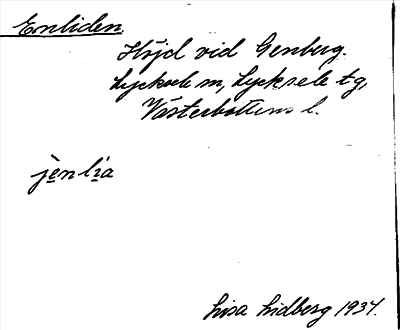 Enliden.
Höjd vid Genberg.
Lycksele m, Lycksele tg,
Västerbottens l.
jènlìa
Lisa Lidberg 1937.